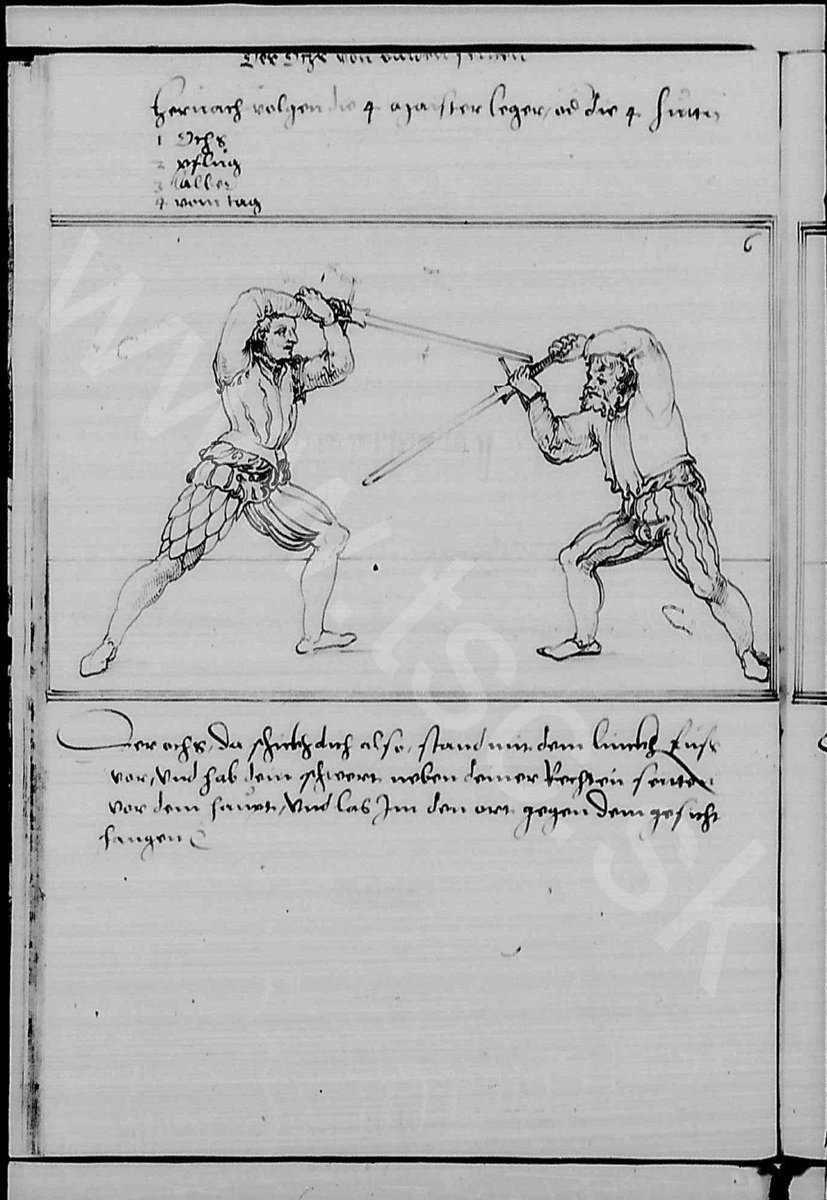 Der Ochs von baiden seitten
Hernach volgen die 4 maister leger, od die 4 hutn
1 Ochs
2 pflug
3 alber
4 vom tag
6
Der ochs, da schickh dich also, stand mit dem linckh fuss
vor, vnd hab dein schwert neben deiner Rechten seitten
vor dem haupt, vnd las Im den ort gegen dem gesicht
hangen
www.tsc.sk